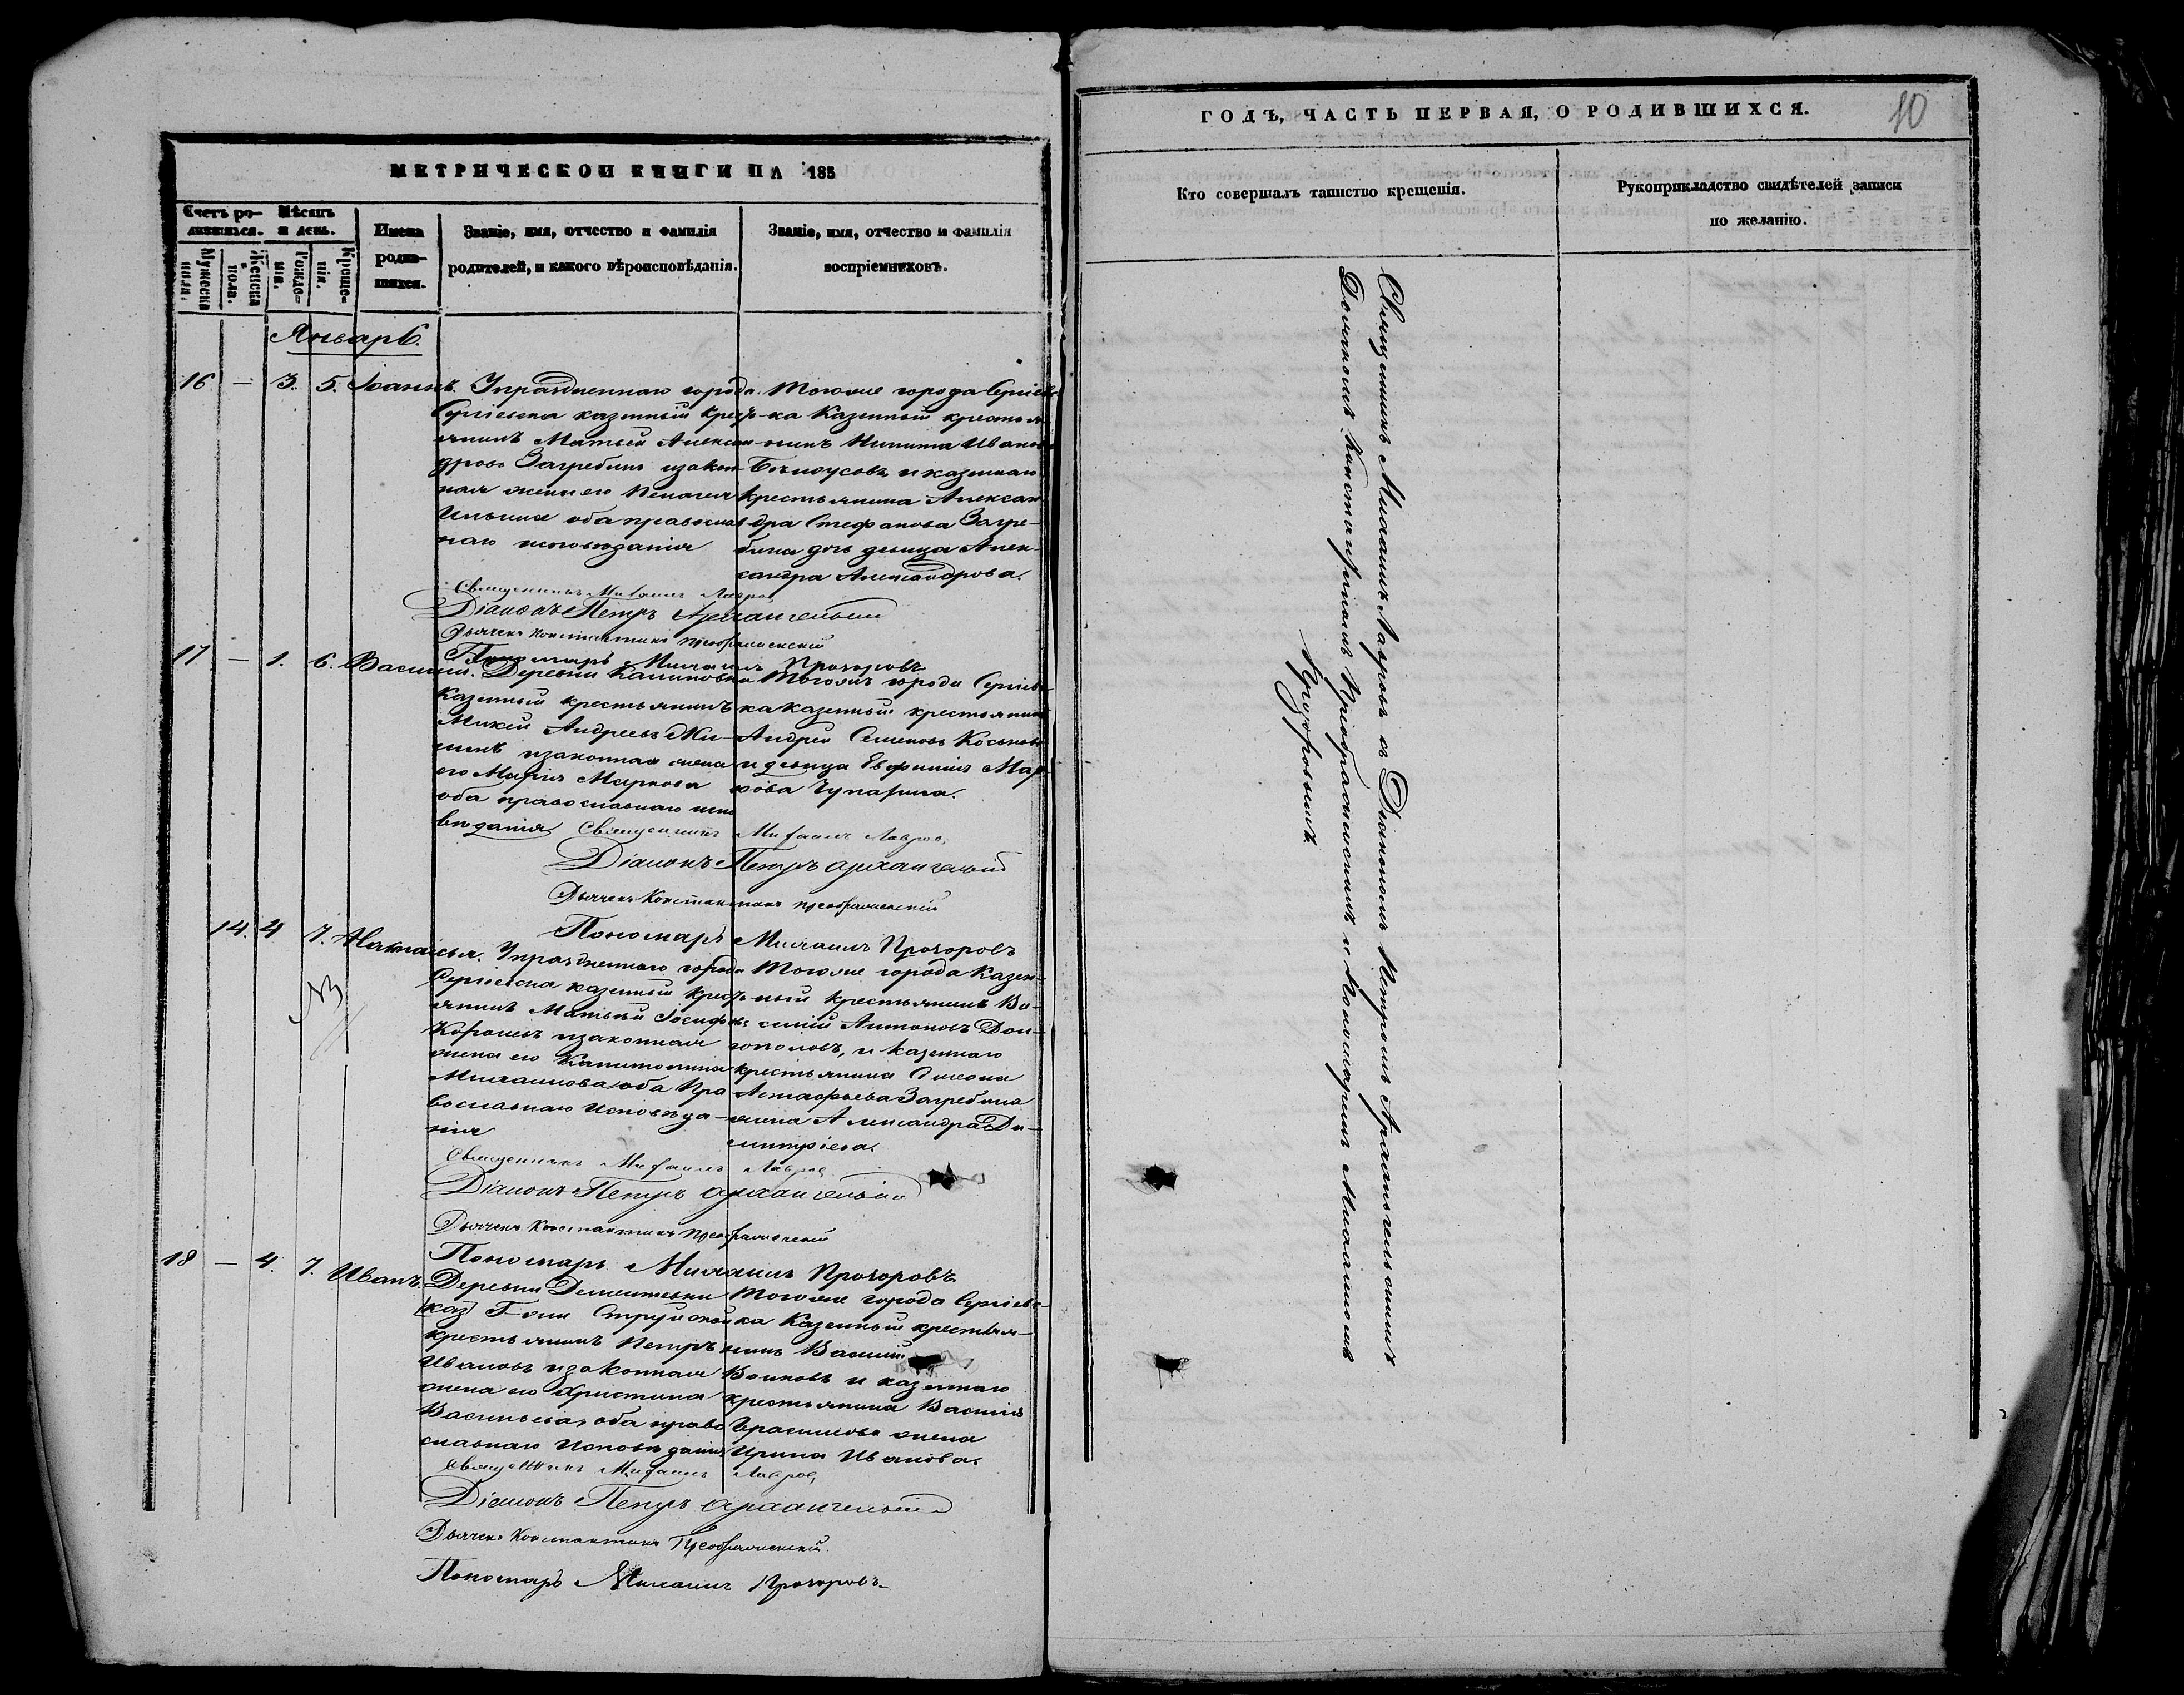 МЕТРИЧЕСКОЙ КНИГИ НА 185
Счетъ ро-
дившихся.
Мѣсяцъ
и день.
Имена
роди-
вшихся.
Званіе, имя, отчество и фамилія
родителей, и какого вѣроисповѣданія.
Званіе, имя, отчество и фамилія
воспріемниковъ.
Мужеска
пола.
Женска
пола.
Рожде-
нія.
Креще-
нія.
Январь.
16 — 3. 5. Іоаннъ.
Упраздненнаго города
Сергіевска казенный крест-
янинъ Матвей Алексан-
дровъ Загребинъ и закон-
ная жена его Пелагея
Ильина оба православ
наго исповѣданія
Тогоже города Сергіевс-
ка Казенный крестья-
нинъ Никита Ивановъ
Бѣлоусовъ и казеннаго
крестьянина Алексан-
дра Стефанова Загре-
бина дочь девица Алек-
сандра Александрова.
Священникъ Михаилъ Лавровъ
Діаконъ Петръ Архангельскій
Дьячекъ Константинъ Преображенскій
Пономарь Михаилъ Прозоровъ
17 — 1. 6. Василій.
Деревни Калиновки
Казенный крестьянинъ
Андреевъ
и законная жена
его Марія Маркова
оба православнаго испо
вѣданія
Тогожъ города Сергіевс-
ка казенный крестьянинъ
Андрей Семеновъ
и девица Евфимія Мар-
кова Чупарина.
Священникъ Михаилъ Лавровъ
Діаконъ Петръ Архангельскій
Дьячекъ Константинъ Преображенскій
Пономарь Михаилъ Прозоровъ
14. 4 7.
Упраздненнаго города
Сергіевска казенный крест-
янинъ Матвѣй Іосифовъ
и законная
жена его Капитолина
Михаилова оба Пра
вославнаго Исповѣда-
нія
Тогоже города Казен-
ный крестьянинъ Ва-
силій Антоновъ Дол-
гополовъ, и казеннаго
крестьянина
Астафьева Загребина
жена Александра Ди-
митріева.
Священникъ Михаилъ Лавровъ
Діаконъ Петръ Архангельскій
Дьячекъ Константинъ Преображенскій
Пономарь Михаилъ Прозоровъ
18 — 4. 7. Иванъ.
Деревни Дементьевки
Г-жи Струйской
крестьянинъ Петръ
Ивановъ и законная
жена его Христина
Васильева, оба право
славнаго Исповѣданія
Тогоже города Сергіевс-
ка Казенный крестья-
нинъ Василій
и казеннаго
крестьянина Василія
Герасимова жена
Ирина Иванова.
Священникъ Михаилъ Лавровъ
Діаконъ Петръ Архангельскій
Дьячекъ Константинъ Преображенскій
Пономарь Михаилъ Прозоровъ
ГОДЪ, ЧАСТЬ ПЕРВАЯ, О РОДИВШИХСЯ.
10
Кто совершалъ таинство крещенія.
Рукоприкладство свидѣтелей записи
по желанію.
Священникъ Михаилъ Лавровъ съ Діакономъ Петромъ Архангельскимъ
Дьячкомъ Константиномъ Преображенскимъ и Пономаремъ Михаиломъ
Прозоровымъ.